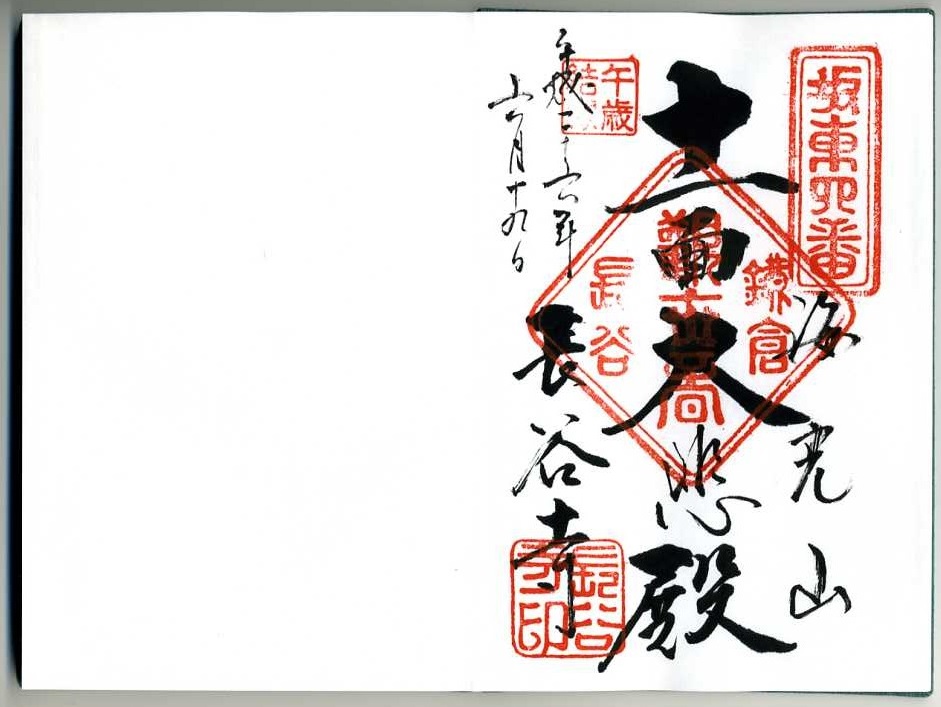 坂東四番
海光山
鎌倉
十一面大悲殿
長谷
午歳
結縁
平成二十六年
六月十九日
長谷寺
長谷
寺印